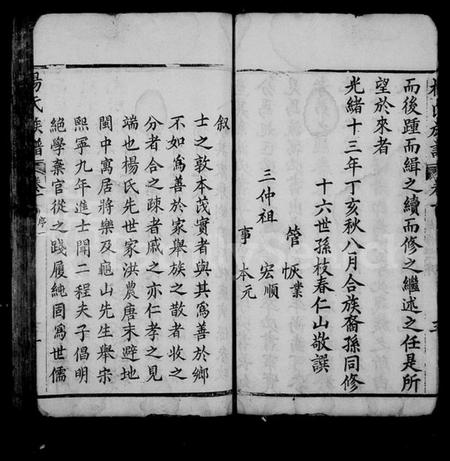 而後踵而緝之續而修之繼述之任是所
望於來者
光緒十三年丁亥秋八月合族裔孫同修
十六世孫枝春仁山敬譔
管 恢業
三仲祖 宏順
事 本元
楊氏族譜 卷一 序 一
叙
士之敦本茂實者與其為善於鄉
不如為善於家舉族之散者收之
分者合之疎者戚之亦仁孝之見
端也楊氏先世家洪農唐末避地
閩中寓居將樂及龜山先生舉宋
熙寧九年進士聞二程夫子倡明
絕學棄官從之踐履純固為世儒